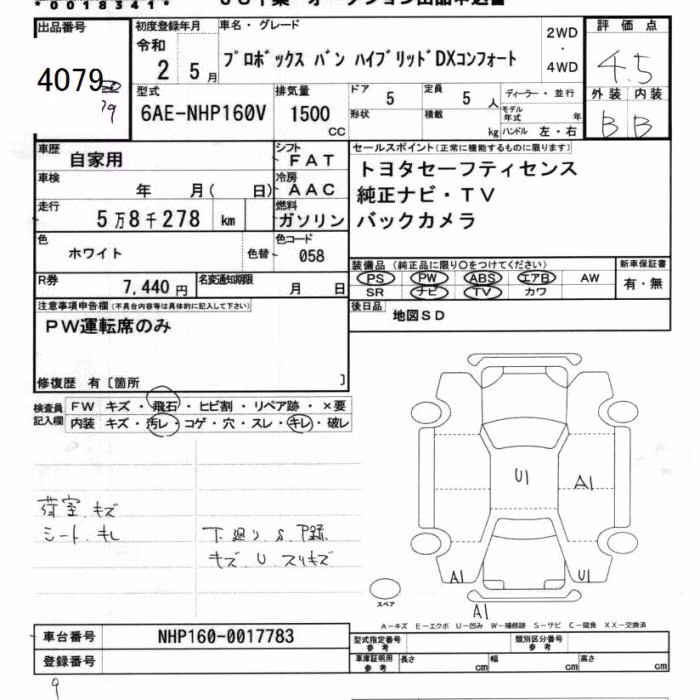 *0018341*
出品番号
4079
初度登録年月
令和
2 5月
車名・グレード
プロボックス バン ハイブリッドDXコンフォート
2WD
・
4WD
評価点
4.5
外装 内装
B B
型式
6AE-NHP160V
排気量
1500
CC
ドア
5
定員
5 人
形状
積載
kg
ディーラー・並行
モデル年式 年
ハンドル 左・右
車歴
自家用
シフト
FAT
車検
年 月( 日)
冷房
AAC
走行
5万8千278 km
燃料
ガソリン
色
ホワイト
色替
色コード
058
R券
7,440円
名変通知期限
月 日
セールスポイント(正常に機能するものに限ります)
トヨタセーフティセンス
純正ナビ・TV
バックカメラ
装備品(純正品に限り○をつけてください)
PS PW ABS エアB AW
SR ナビ TV カワ
新車保証書
有・無
後日品
地図SD
注意事項申告欄(不具合内容等は具体的に記入して下さい)
PW運転席のみ
修復歴 有〔箇所 〕
検査員記入欄
FW キズ・飛石・ヒビ割・リペア跡・×要
内装 キズ・汚レ・コゲ・穴・スレ・キレ・破レ
荷室.キズ
シート.キレ
下廻り S.P跡
キズ U スリキズ
U1
A1
A1
U1
A1
スペア
A-キズ E-エクボ U-凹み W-補修跡 S-サビ C-腐食 XX-交換済
車台番号
NHP160-0017783
登録番号
型式指定番号
参考
類別区分番号
参考
車庫証明用
参考
長さ cm
幅 cm
高さ cm
9